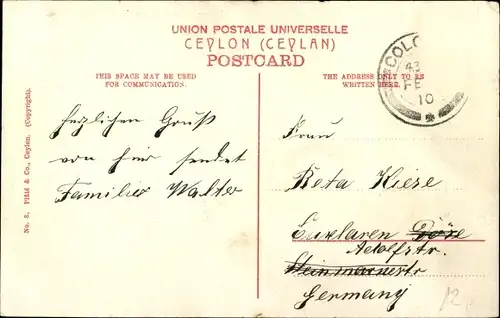 UNION POSTALE UNIVERSELLE
CEYLON (CEYLAN)
POSTCARD
THIS SPACE MAY BE USED
FOR COMMUNICATION.
THE ADDRESS ONLY TO BE
WRITTEN HERE.
COLO
FE
10
No. 8. Plâté & Co., Ceylon. (Copyright).
Herzlichen Gruß
von hier sendet
Familie Walter
Frau
Meta Kiese
Adolfstr.
Germany
12,